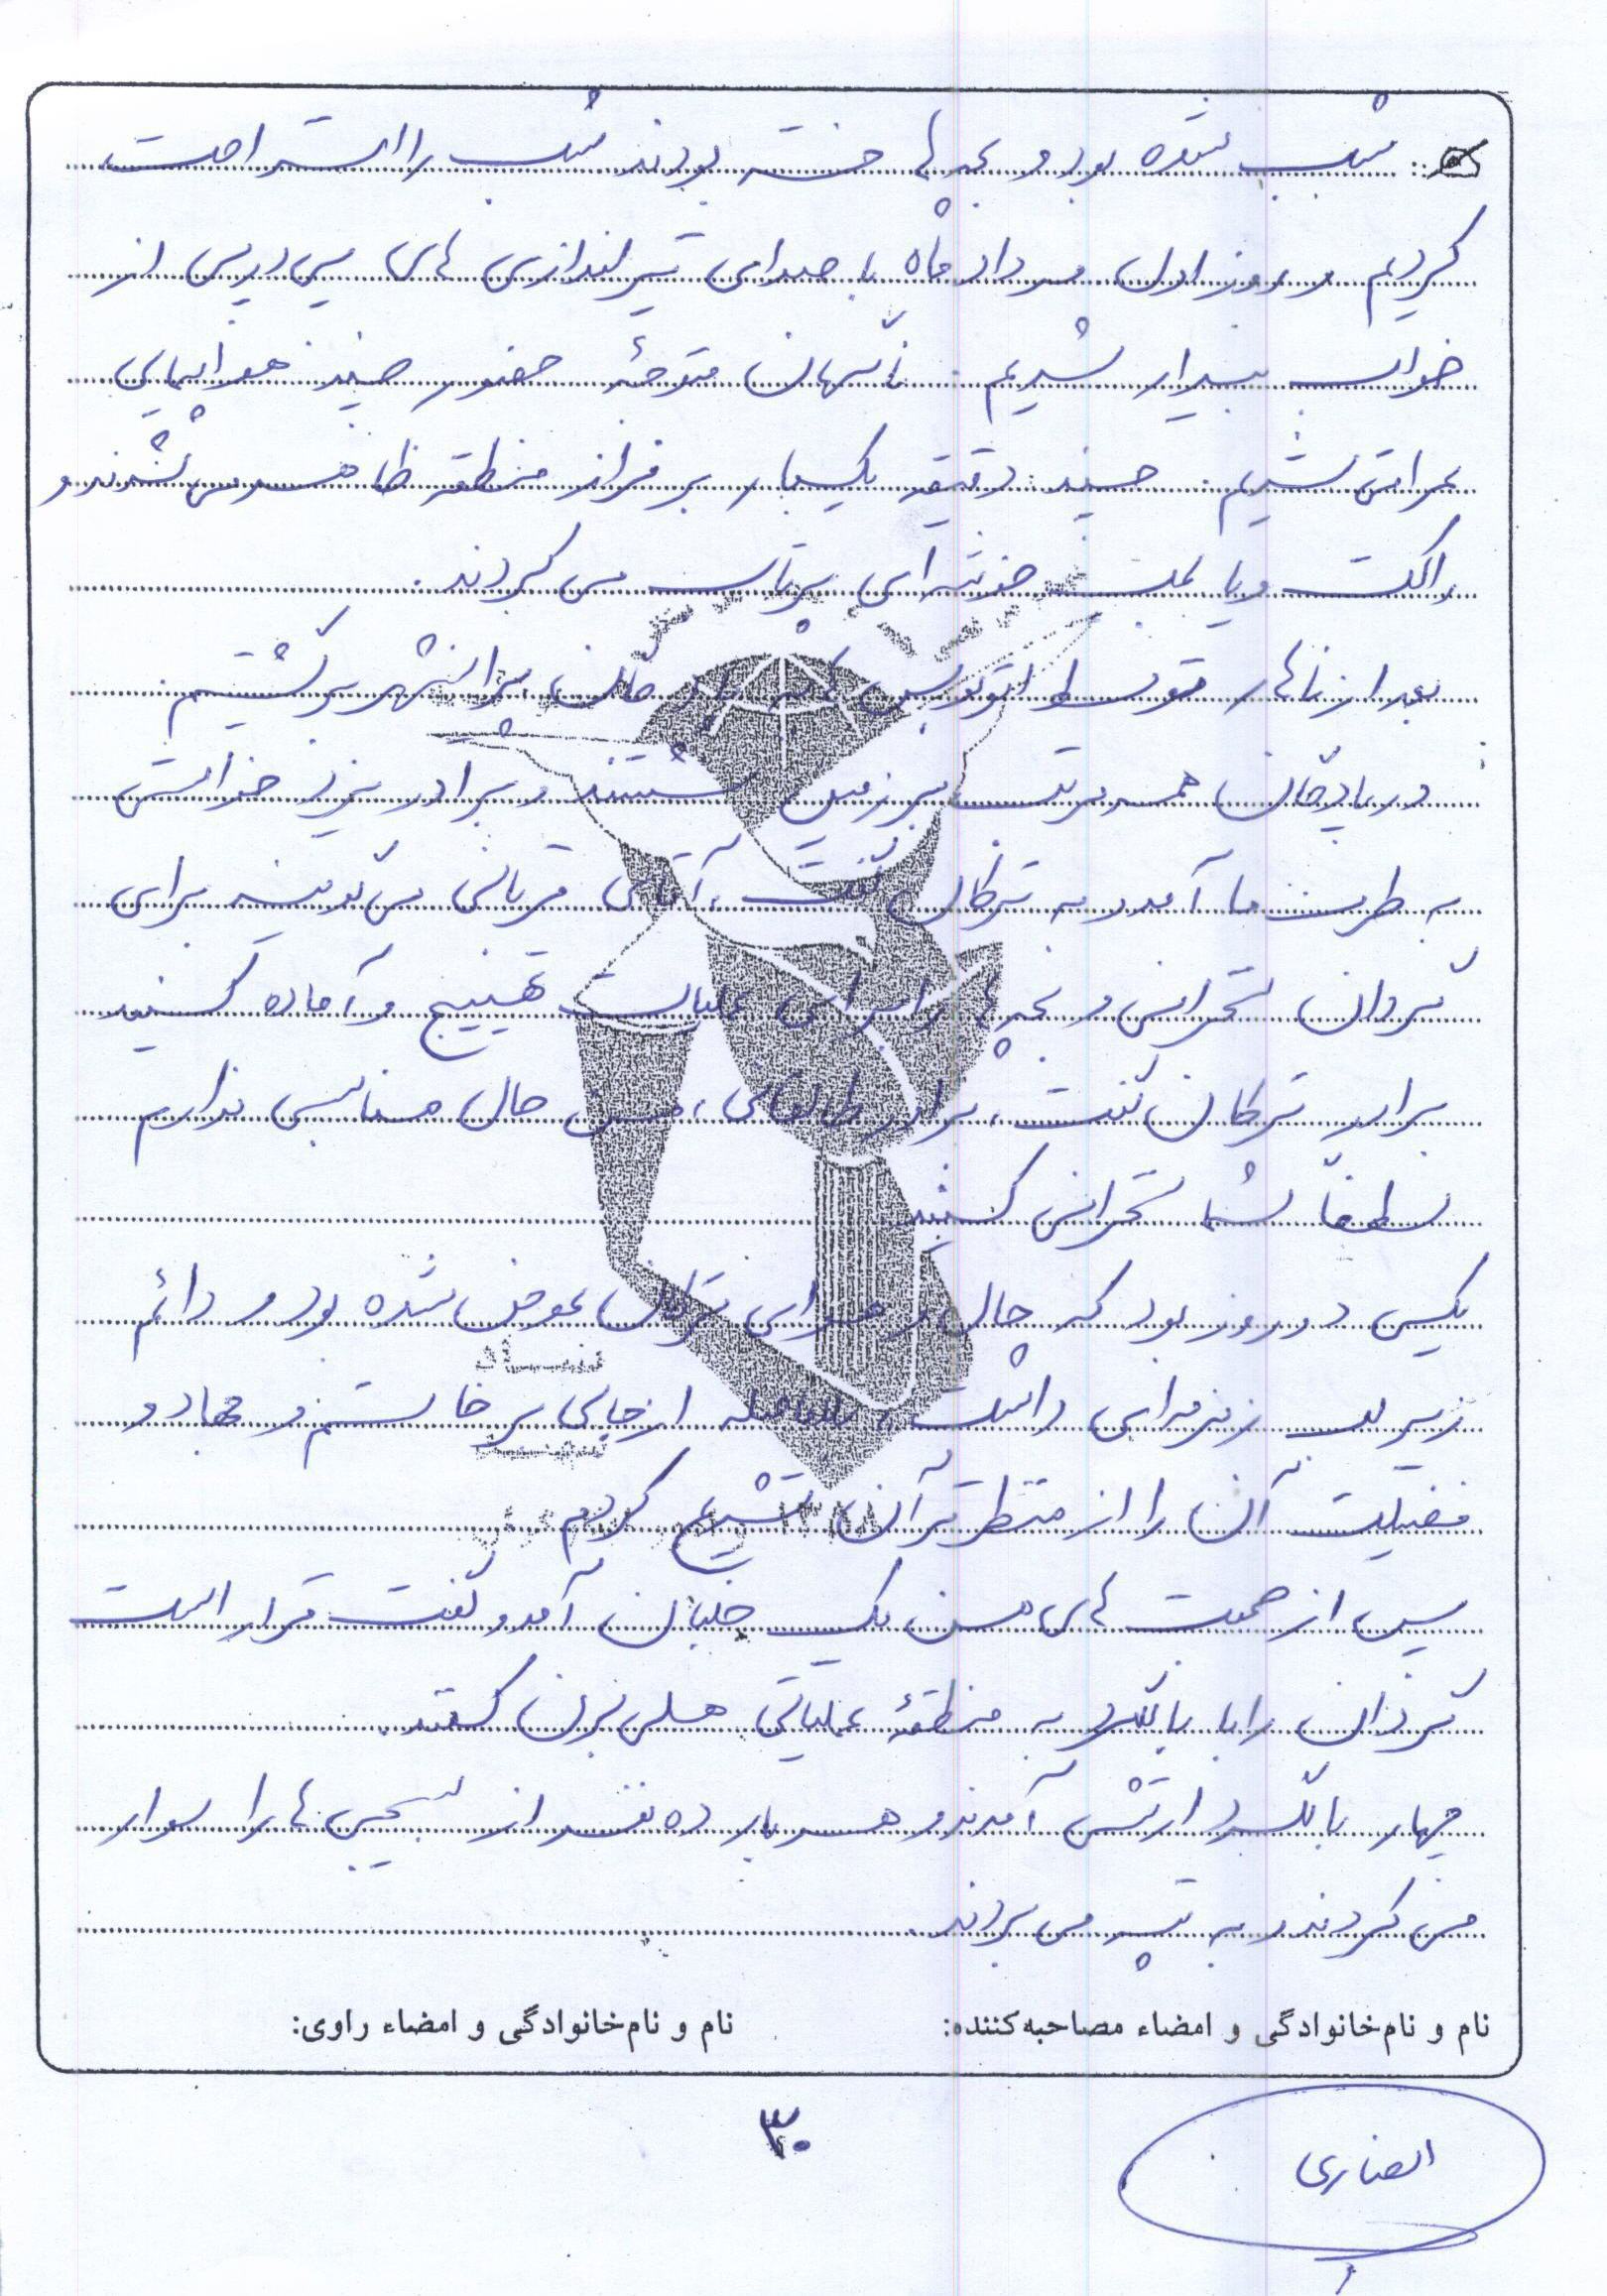 شب شده بود و بچه‌ها خسته بودند شب را استراحت
کردیم و روز اول مرداد ماه با صدای تیراندازی های پی در پی از
خواب بیدار شدیم. ناگهان متوجه حضور چند هواپیمایی
عراقی شدیم. چند دقیقه یکبار بر فراز منطقه ظاهر می شدند و
راکت و یا بمب خوشه ای پرتاب می کردند.
بعد از ناهار توسط اتوبوس ها به پادگان پیرانشهر برگشتیم.
در پادگان همه مرتب بر زمین نشستند و برادر
به طرف ما آمد و به ترکان گفت، آقای قربانی می گویند برای
گردان سخرانی و بچه ها را برای عملیات تهییج و آماده کنید
برادر ترکان گفت، برادر طالقانی، من حال مناسبی ندارم
لطفاً شما سخرانی کنید
یکی دو روز بود که حال و هوای ترکان عوض شده بود و دائم
زیر لب زمزمه ای داشت، بلافاصله از جای برخاستم و جهاد و
فضیلت آن را از منظر قرآن تشریح کردم.
پس از صحبت های من یک خلبان آمد و گفت قرار است
گردان را با بالگرد به منطقهٔ عملیاتی هلی برن کنند.
چهار بالگرد ارتش آمدند و هر بار ده نفر از بسیجی ها را سوار
می کردند و به تپه می بردند.
نام و نام‌خانوادگی و امضاء مصاحبه‌کننده: نام و نام‌خانوادگی و امضاء راوی:
۳۰
انصاری